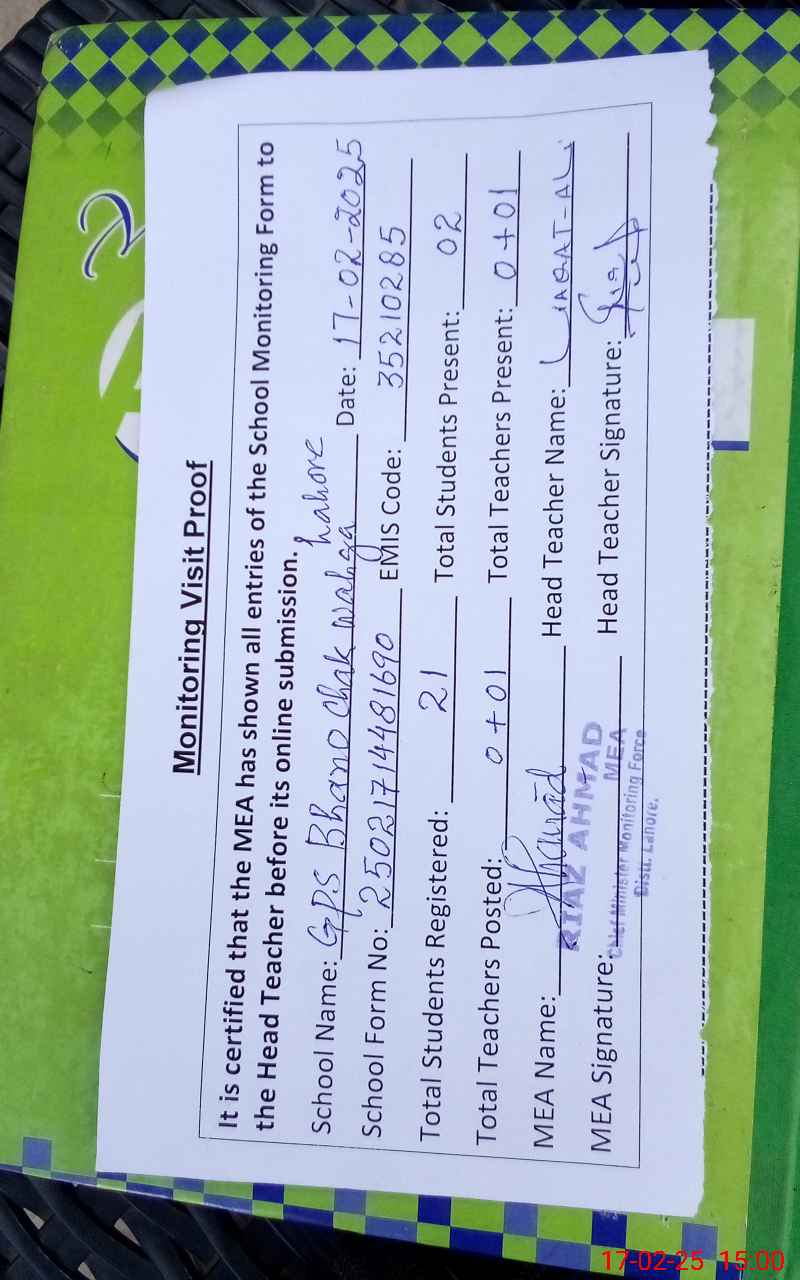 Monitoring Visit Proof
It is certified that the MEA has shown all entries of the School Monitoring Form to
the Head Teacher before its online submission.
School Name: GPS Bhano Chak Wahga Lahore Date: 17-02-2025
School Form No: 250217144481690 EMIS Code: 35210285
Total Students Registered: 21 Total Students Present: 02
Total Teachers Posted: 0+01 Total Teachers Present: 0+01
MEA Name: Head Teacher Name: LIAQAT-ALI
RIAZ AHMAD
MEA Signature: MEA Head Teacher Signature:
Chief Minister Monitoring Force
Distt. Lahore.
17-02-25 15:00